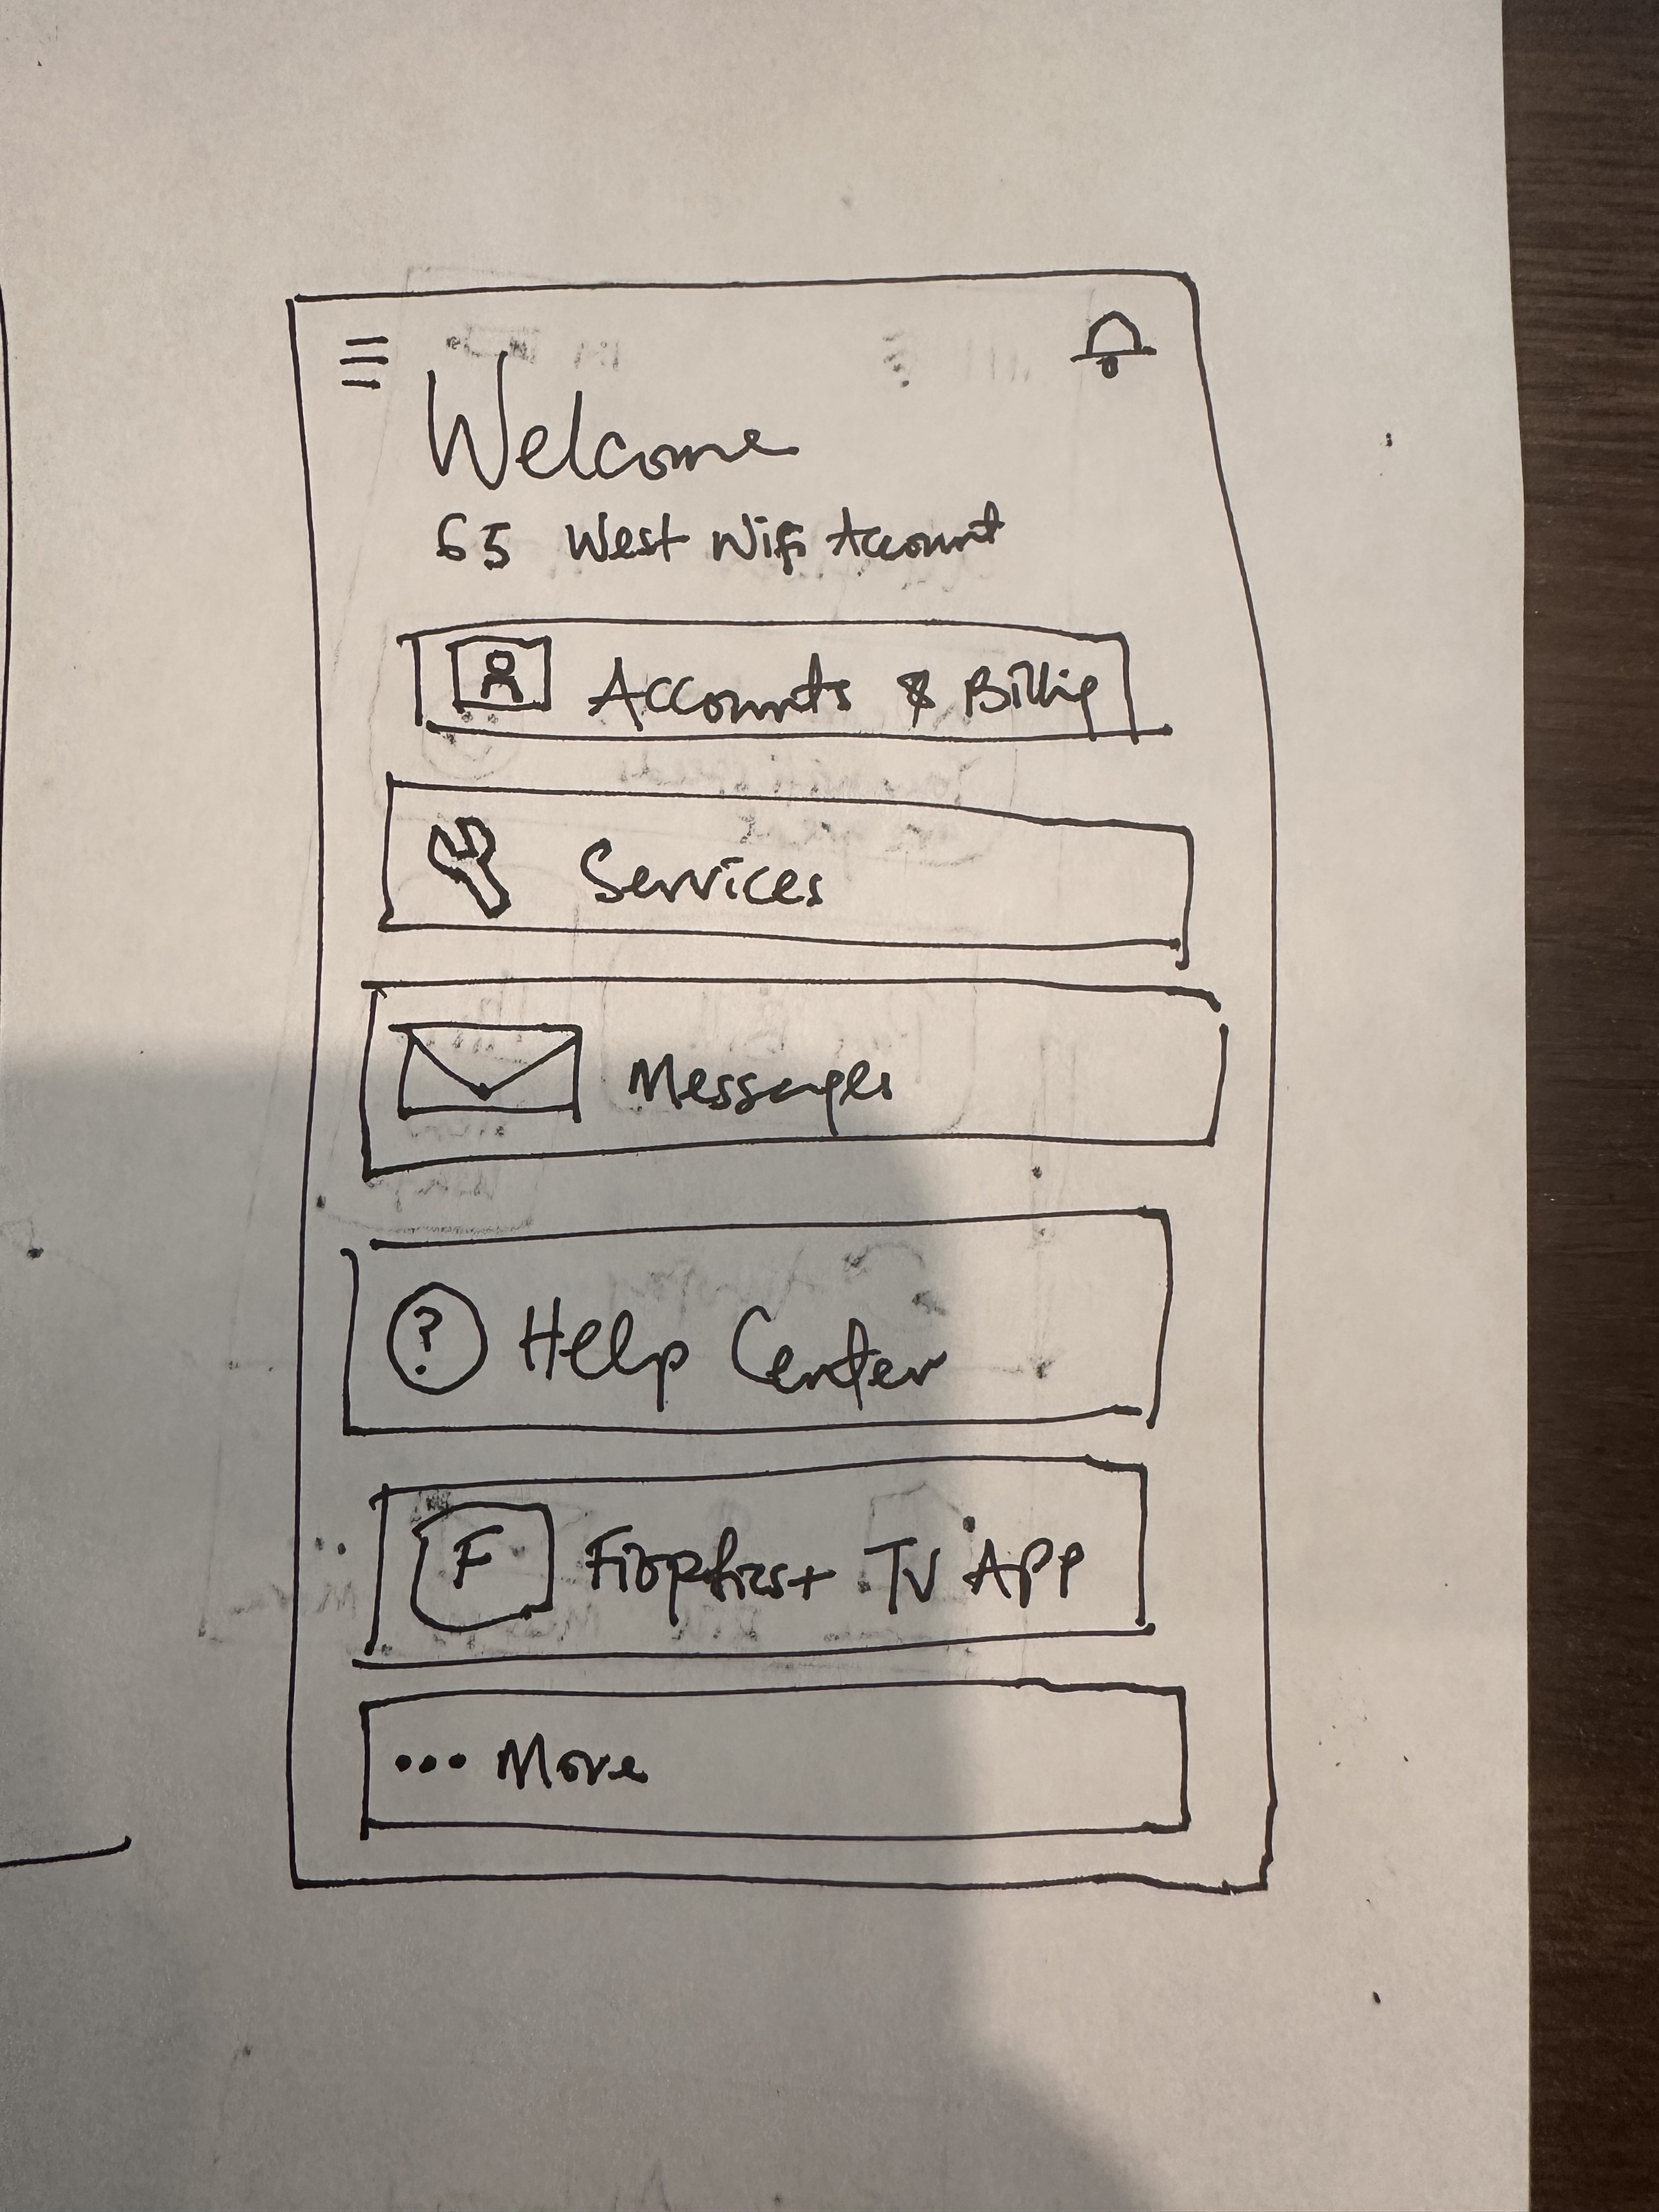 Welcome
65 West Wifi Account
Accounts & Billig
Services
Messages
? Help Center
F TV App
••• More